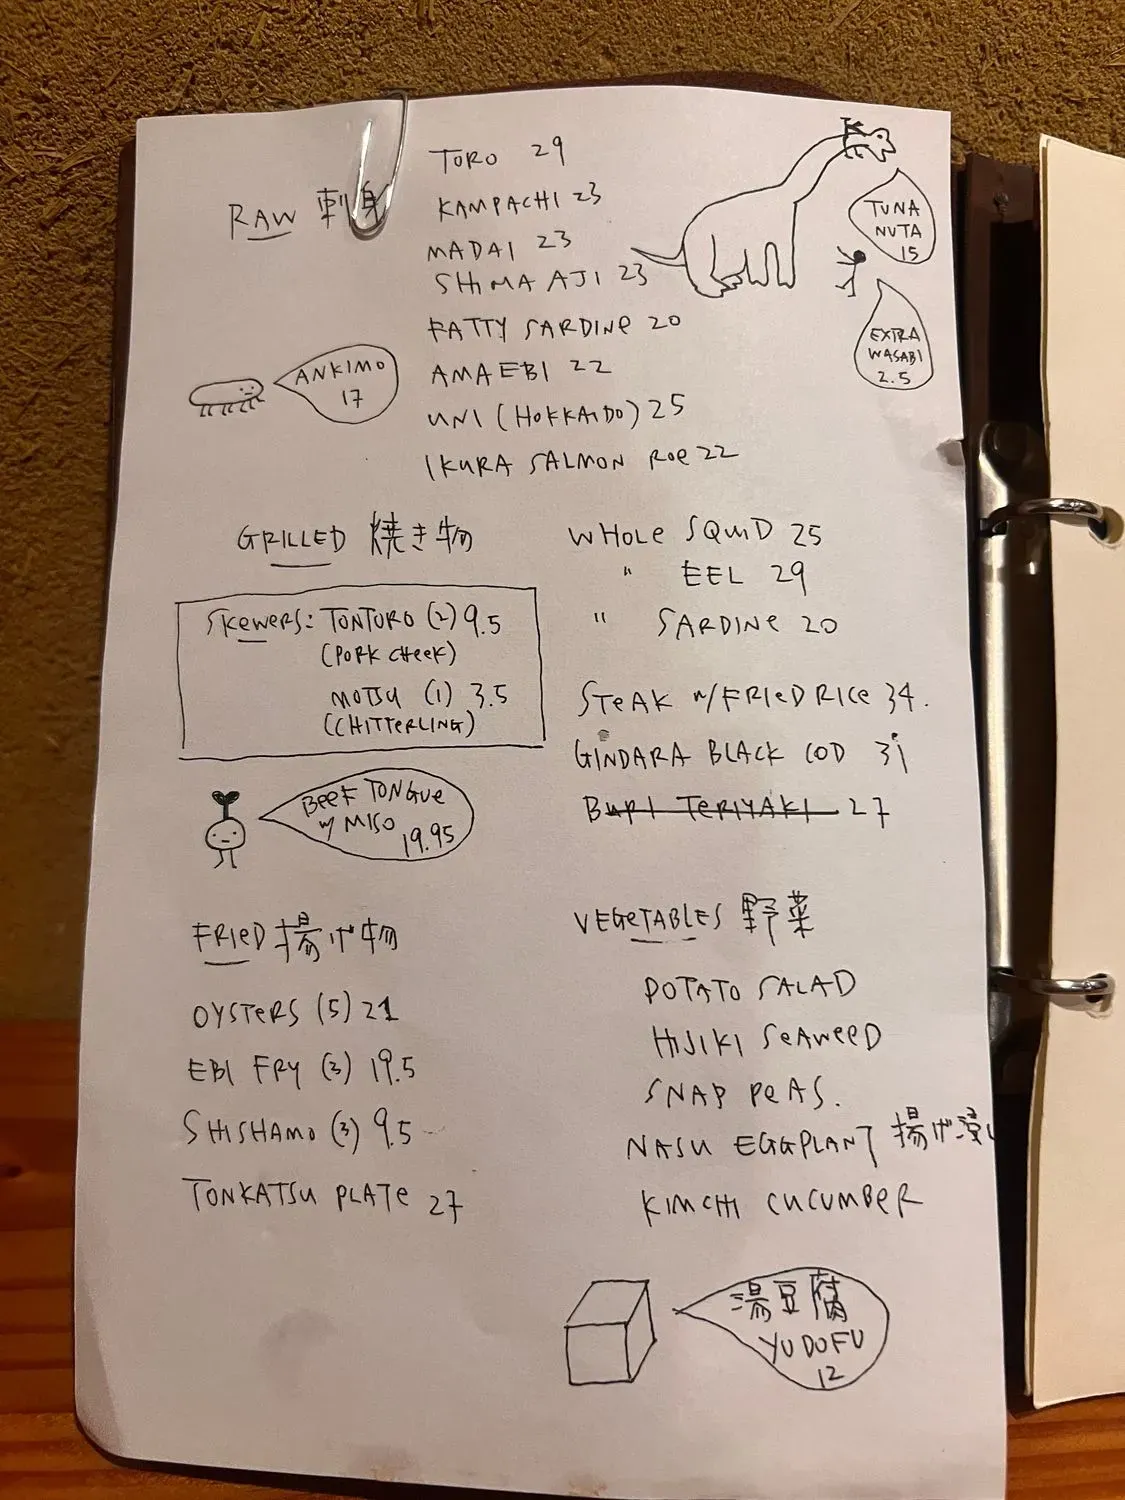 RAW 刺身
TORO 29
KAMPACHI 23
MADAI 23
SHIMA AJI 23
FATTY SARDINE 20
AMAEBI 22
UNI (HOKKAIDO) 25
IKURA SALMON ROE 22
TUNA
NUTA
15
EXTRA
WASABI
2.5
ANKIMO
17
GRILLED 焼き物
SKEWERS: TONTORO (2) 9.5
(PORK CHEEK)
MOTSU (1) 3.5
(CHITTERLING)
BEEF TONGUE
w/ MISO
19.95
WHOLE SQUID 25
" EEL 29
" SARDINE 20
STEAK w/ FRIED RICE 34.
GINDARA BLACK COD 31
BURI TERIYAKI 27
FRIED 揚げ物
OYSTERS (5) 21
EBI FRY (3) 19.5
SHISHAMO (3) 9.5
TONKATSU PLATE 27
VEGETABLES 野菜
POTATO SALAD
HIJIKI SEAWEED
SNAP PEAS.
NASU EGGPLANT 揚げ浸し
KIMCHI CUCUMBER
湯豆腐
YUDOFU
12